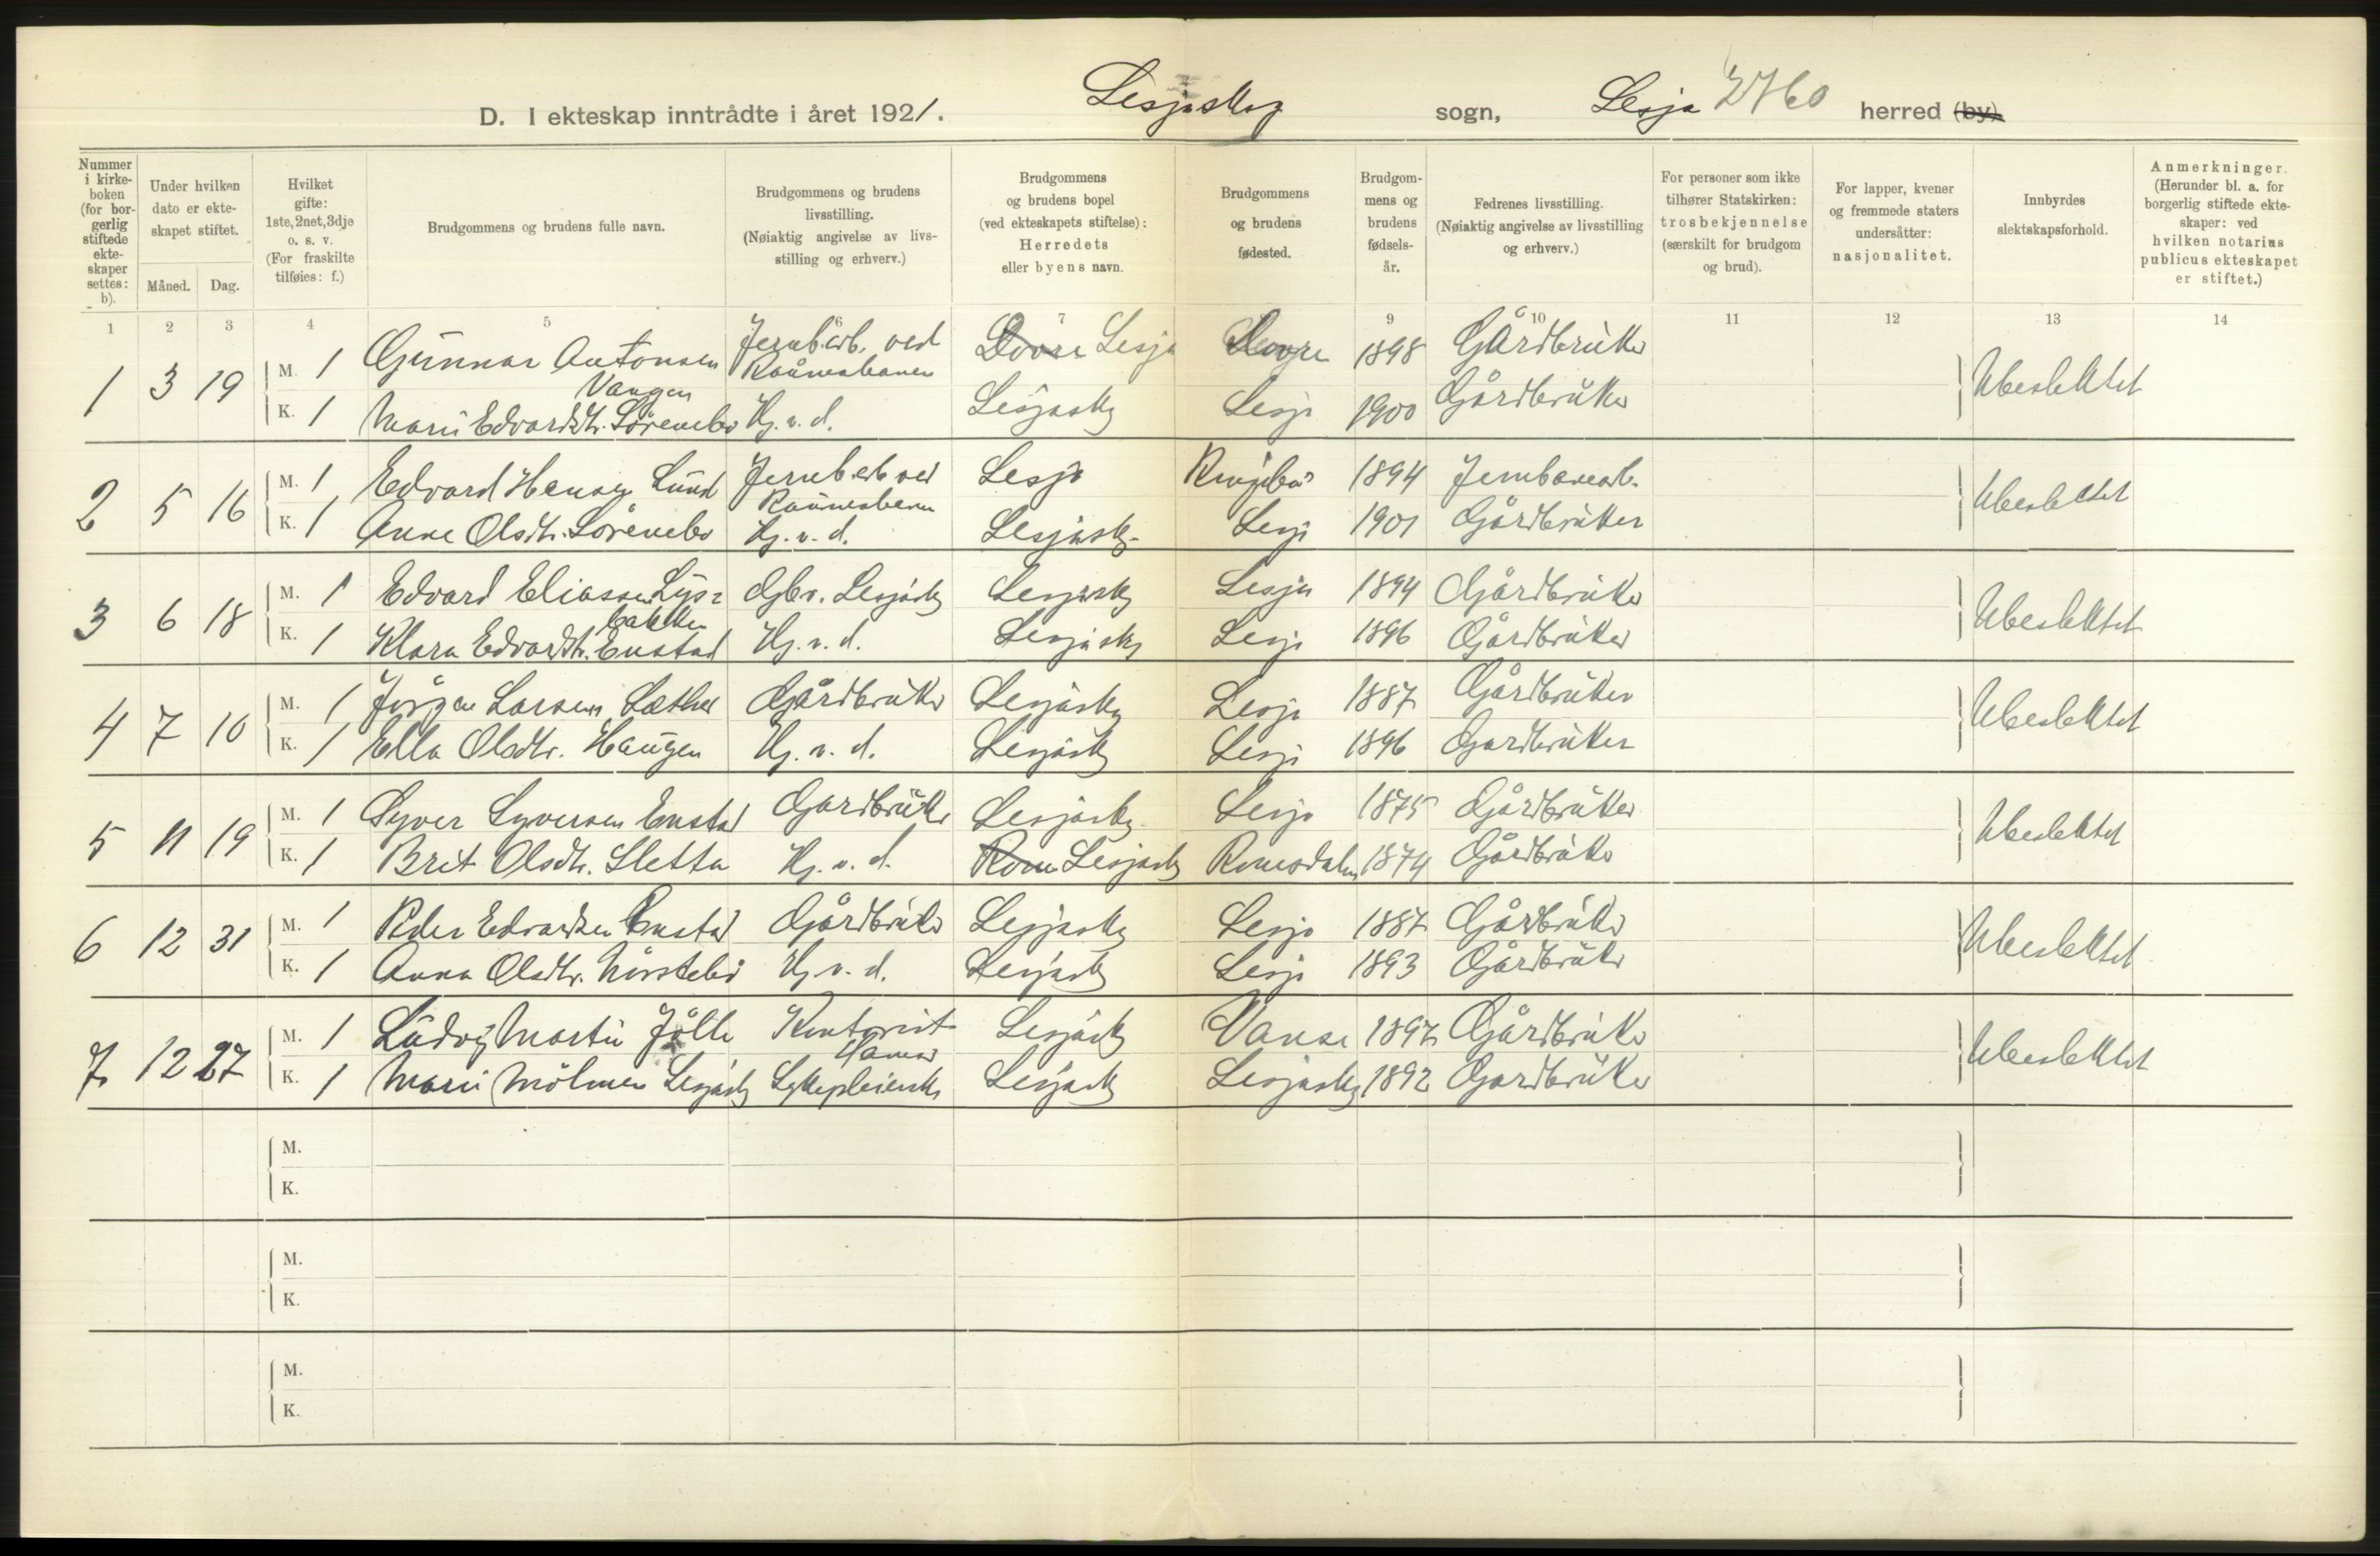 D. I ekteskap inntrådte i året 1921. Lesjaskog sogn, Lesja 2760 herred (by)
Nummer i kirke-boken (for bor-gerlig stiftede ekte-skaper settes: b).
Under hvilken dato er ekte-skapet stiftet.
Måned. Dag.
Hvilket gifte: 1ste, 2net, 3dje o. s. v. (For fraskilte tilføies: f.)
Brudgommens og brudens fulle navn.
Brudgommens og brudens livsstilling. (Nøiaktig angivelse av livs-stilling og erhverv.)
Brudgommens og brudens bopel (ved ekteskapets stiftelse): Herredets eller byens navn.
Brudgommens og brudens fødested.
Brudgom-mens og brudens fødsels-år.
Fedrenes livsstilling. (Nøiaktig angivelse av livsstilling og erhverv.)
For personer som ikke tilhører Statskirken: trosbekjennelse (særskilt for brudgom og brud).
For lapper, kvener og fremmede staters undersåtter: nasjonalitet.
Innbyrdes slektskapsforhold.
Anmerkninger. (Herunder bl. a. for borgerlig stiftede ekte-skaper: ved hvilken notarius publicus ekteskapet er stiftet.)
1 2 3 4 5 6 7 9 10 11 12 13 14
1 3 19 M. 1 Gunnar Antonsen Vangen Jernb.arb. ved Raumabanen Dovre Lesja Dovre 1898 Gårdbruker Ubeslektet
K. 1 Mari Edvardsdtr. Sörembo Hj. v. d. Lesjask Lesja 1900 Gårdbruker
2 5 16 M. 1 Edvard Hansen Lund Jernb.arb ved Raumabanen Lesja Ringebu 1894 Jernbanearb. Ubeslektet
K. 1 Anne Olsdtr. Sörembo Hj. v. d. Lesjask. Lesja 1901 Gårdbruker
3 6 18 M. 1 Edvard Eliassen Lys-bakken Gbr. Lesjask Lesjask Lesja 1894 Gårdbruker Ubeslektet
K. 1 Klara Edvardsdt. Enstad Hj. v. d. Lesjask Lesja 1896 Gårdbruker
4 7 10 M. 1 Jörgen Larsen Sæther Gårdbruker Lesjask Lesja 1887 Gårdbruker Ubeslektet
K. 1 Ella Olsdtr. Haugen Hj. v. d. Lesjask Lesja 1896 Gardbruker
5 11 19 M. 1 Syver Syversen Enstad Gardbruker Lesjask Lesja 1875 Gårdbruker Ubeslektet
K. 1 Brit Olsdtr. Sletta Hj. v. d. Rom Lesjask Romsdalen 1874 Gårdbruker
6 12 31 M. 1 Peder Edvardsen Enstad Gårdbruker Lesjask Lesja 1887 Gårdbruker Ubeslektet
K. 1 Anna Olsdtr. Nörstebö Hj. v. d. Lesjask Lesja 1893 Gårdbruker
7 12 27 M. 1 Ludvig Martin Jölle Kontorist Lesjask Vanse 1897 Gårdbruker Ubeslektet
K. 1 Mari Mölmen Lesjask Sykepleierske Hamar Lesjask Lesjask 1892 Gardbruker
M.
K.
M.
K.
M.
K.